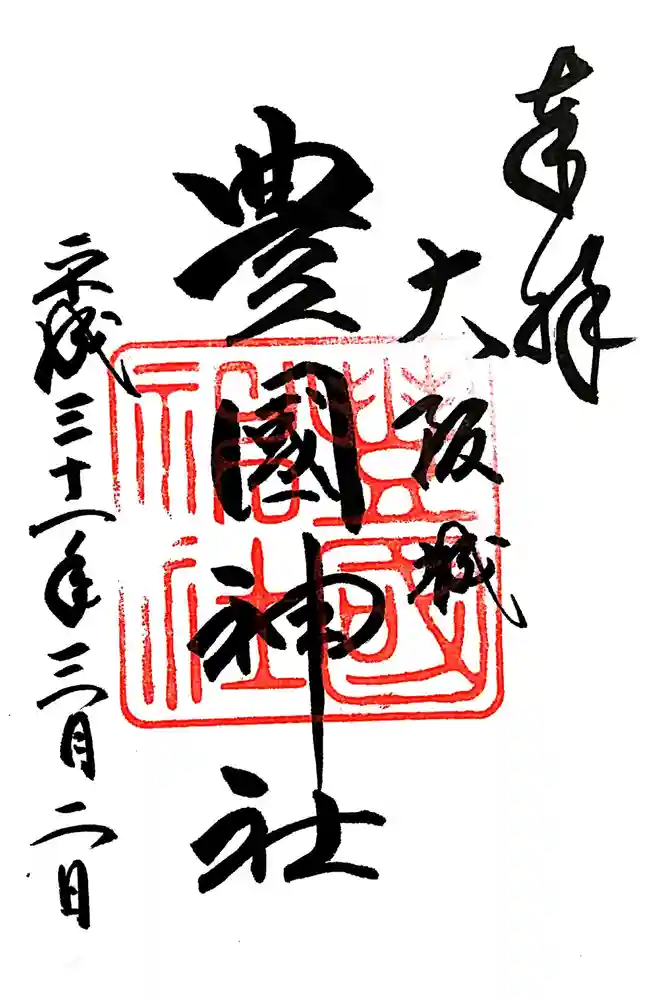 奉拝
大阪城
豊國神社
豊國神社
平成三十一年三月二日